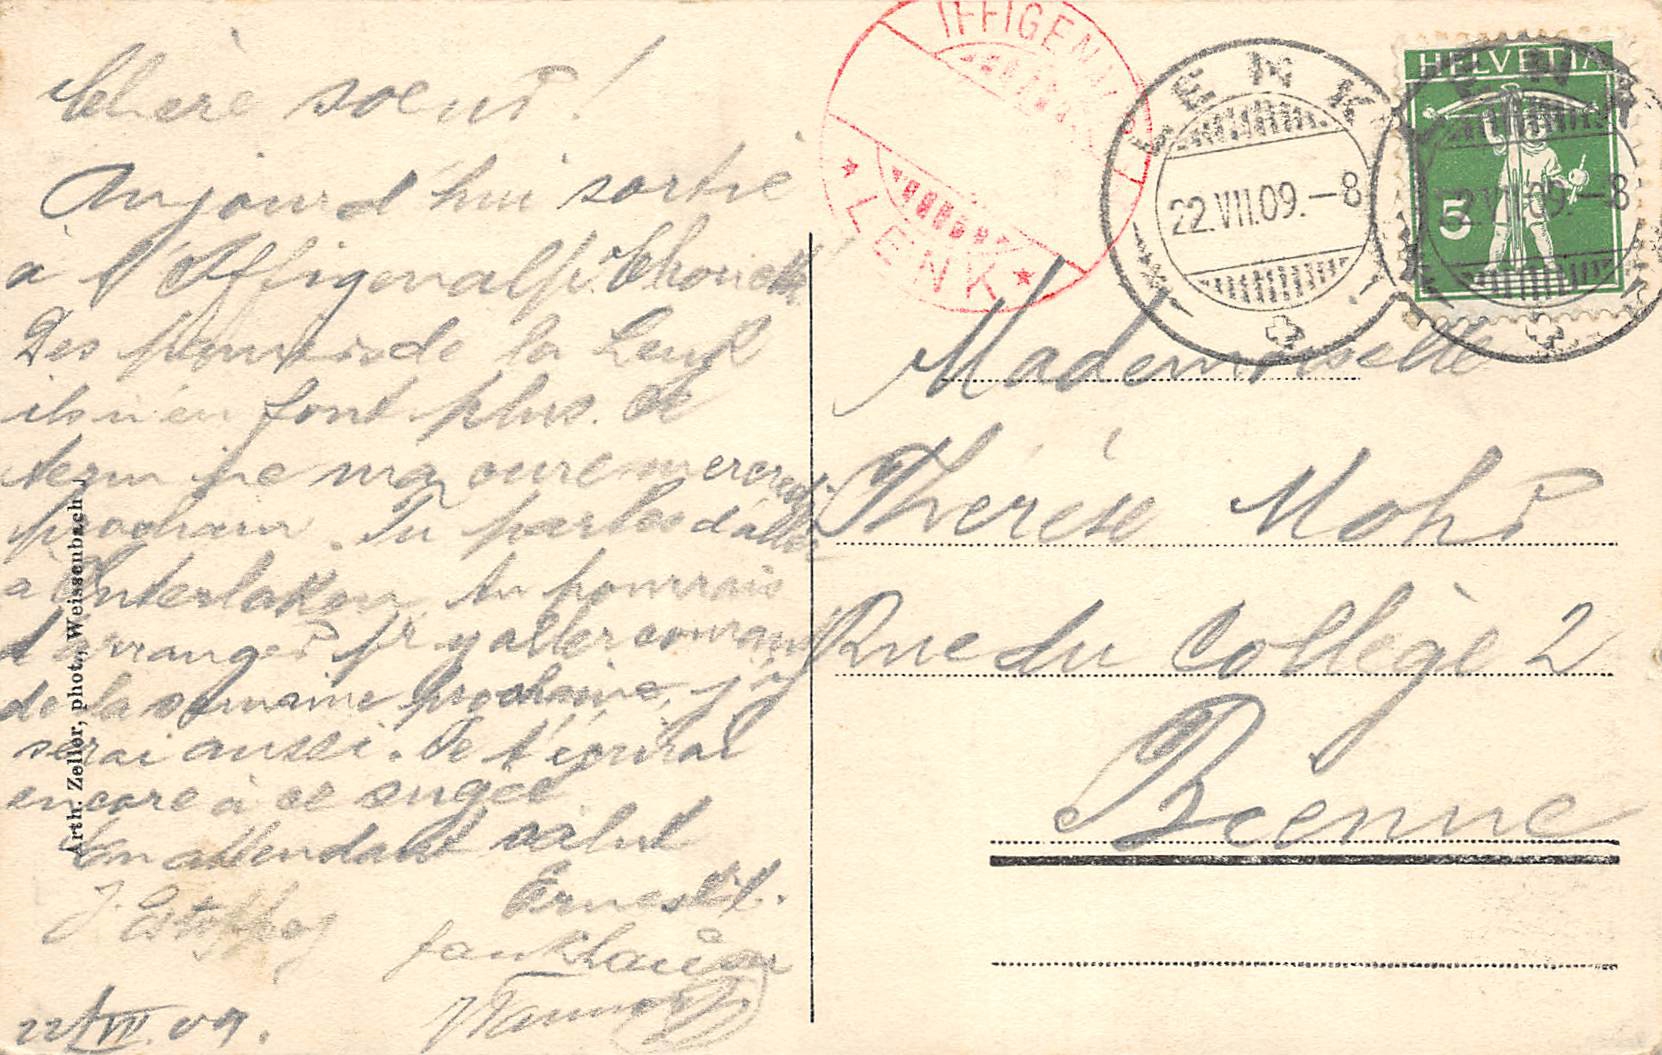 Chère soeur!
Aujourd'hui sortie
à l'Iffigenalp. Chouette
Des de la Lenk
ils n'en font plus. Je
termine ma cure mercredi
prochain. Tu parles d'aller
à Interlaken, tu pourrais
t'arranger pr y aller courant
de la semaine prochaine, j'y
serai aussi. Je t'écrirai
encore à ce sujet
En attendant salut
Ernest
J. Estoppey
22/VII 09.
Arth. Zeller, phot., Weissenbach
IFFIGENALP
LENK
LENK
22.VII.09.-8
LENK
22.VII.09.-8
HELVETIA
5
Mademoiselle
Thérèse Mohr
Rue du Collège 2
Bienne